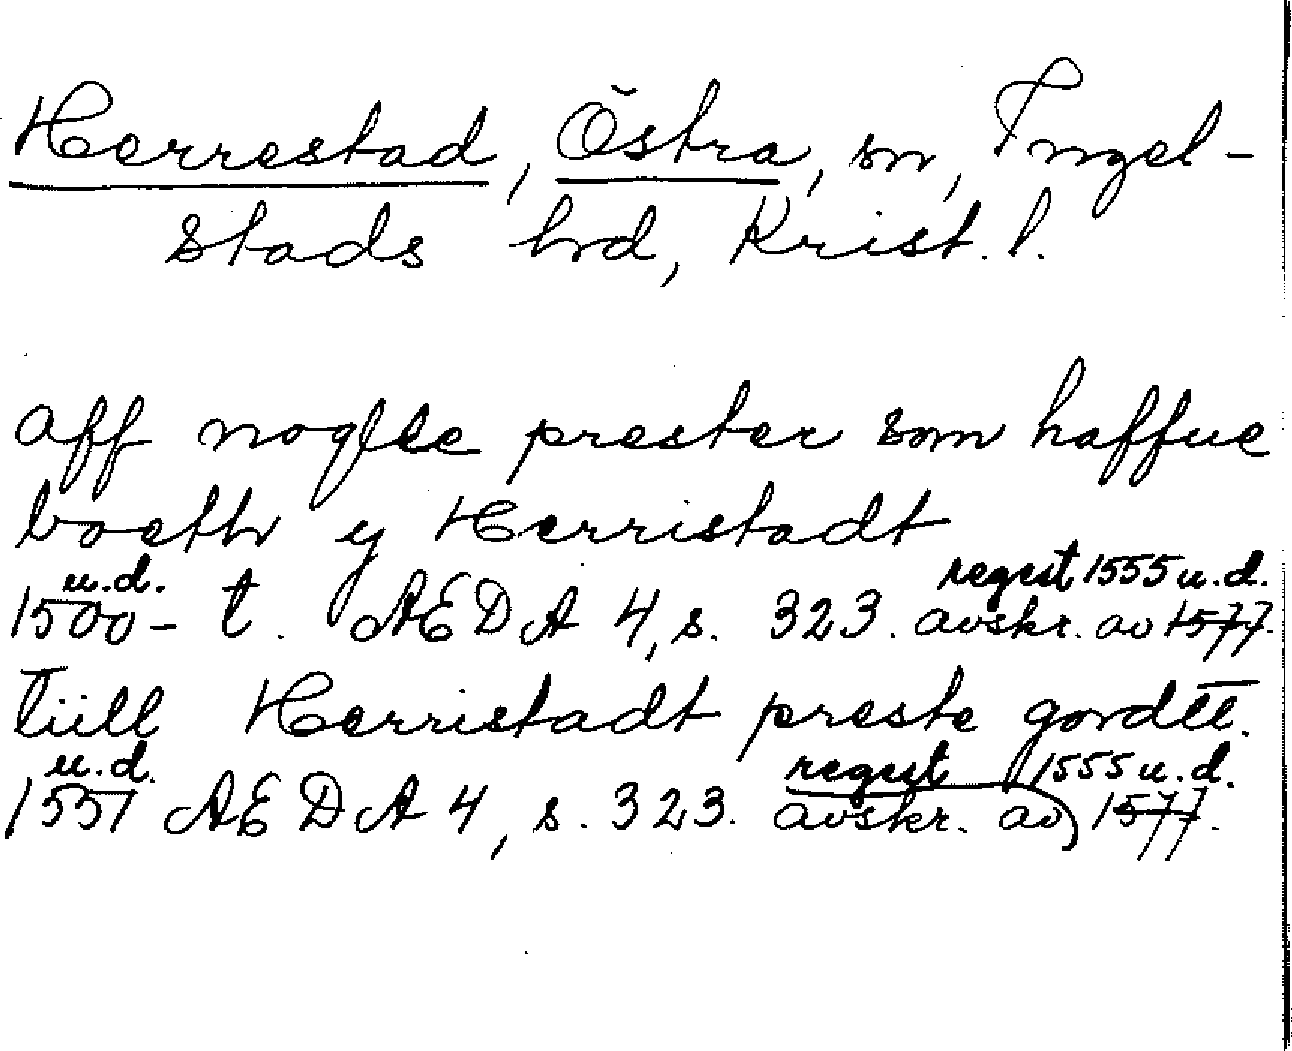 Herrestad, Östra, sn, Ingel-
stads hd, Krist. l.
aff nogflee prester som haffue
boeth y Herristadt
u.d. regest 1555 u.d.
1500-t. AEDA 4, s. 323. avskr. av 1577.
Tiill Herristadt preste gordtt.
u.d. regest 1555 u.d.
1551 AEDA 4, s. 323. avskr. av 1577.